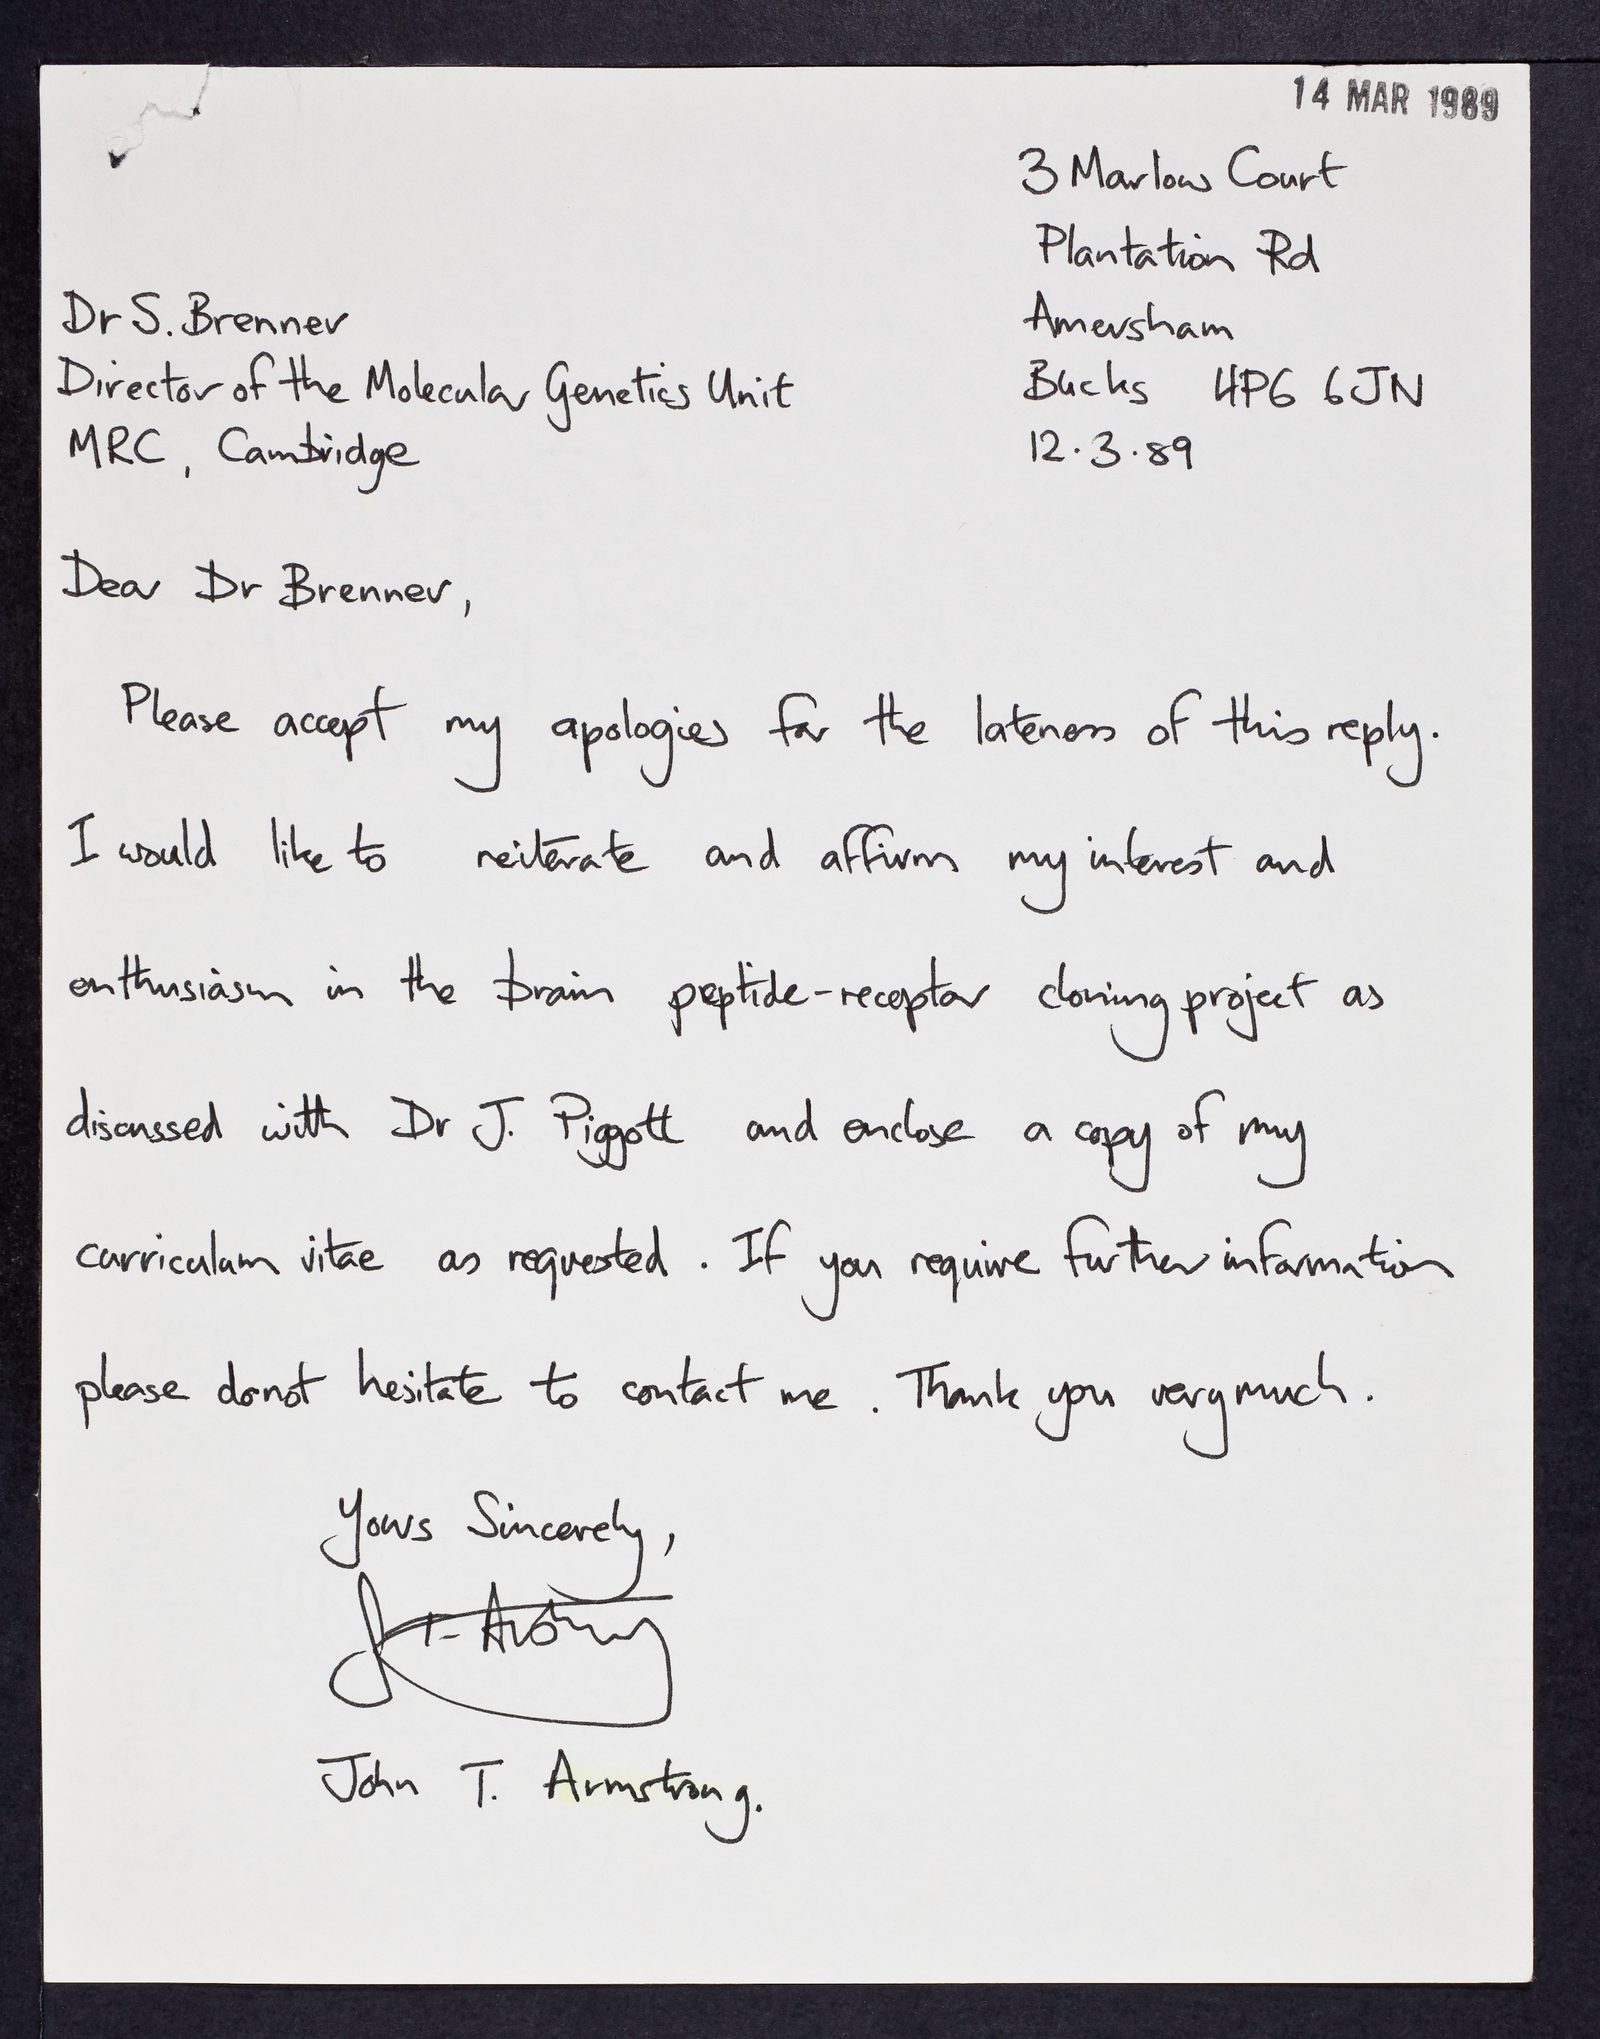 14 MAR 1989
3 Marlow Court
Plantation Rd
Amersham
Bucks HP6 6JN
12.3.89
Dr S. Brenner
Director of the Molecular Genetics Unit
MRC, Cambridge
Dear Dr Brenner,
Please accept my apologies for the lateness of this reply.
I would like to reiterate and affirm my interest and
enthusiasm in the brain peptide-receptor cloning project as
discussed with Dr J. Piggott and enclose a copy of my
curriculum vitae as requested. If you require further information
please do not hesitate to contact me. Thank you very much.
Yours Sincerely,
John T. Armstrong.